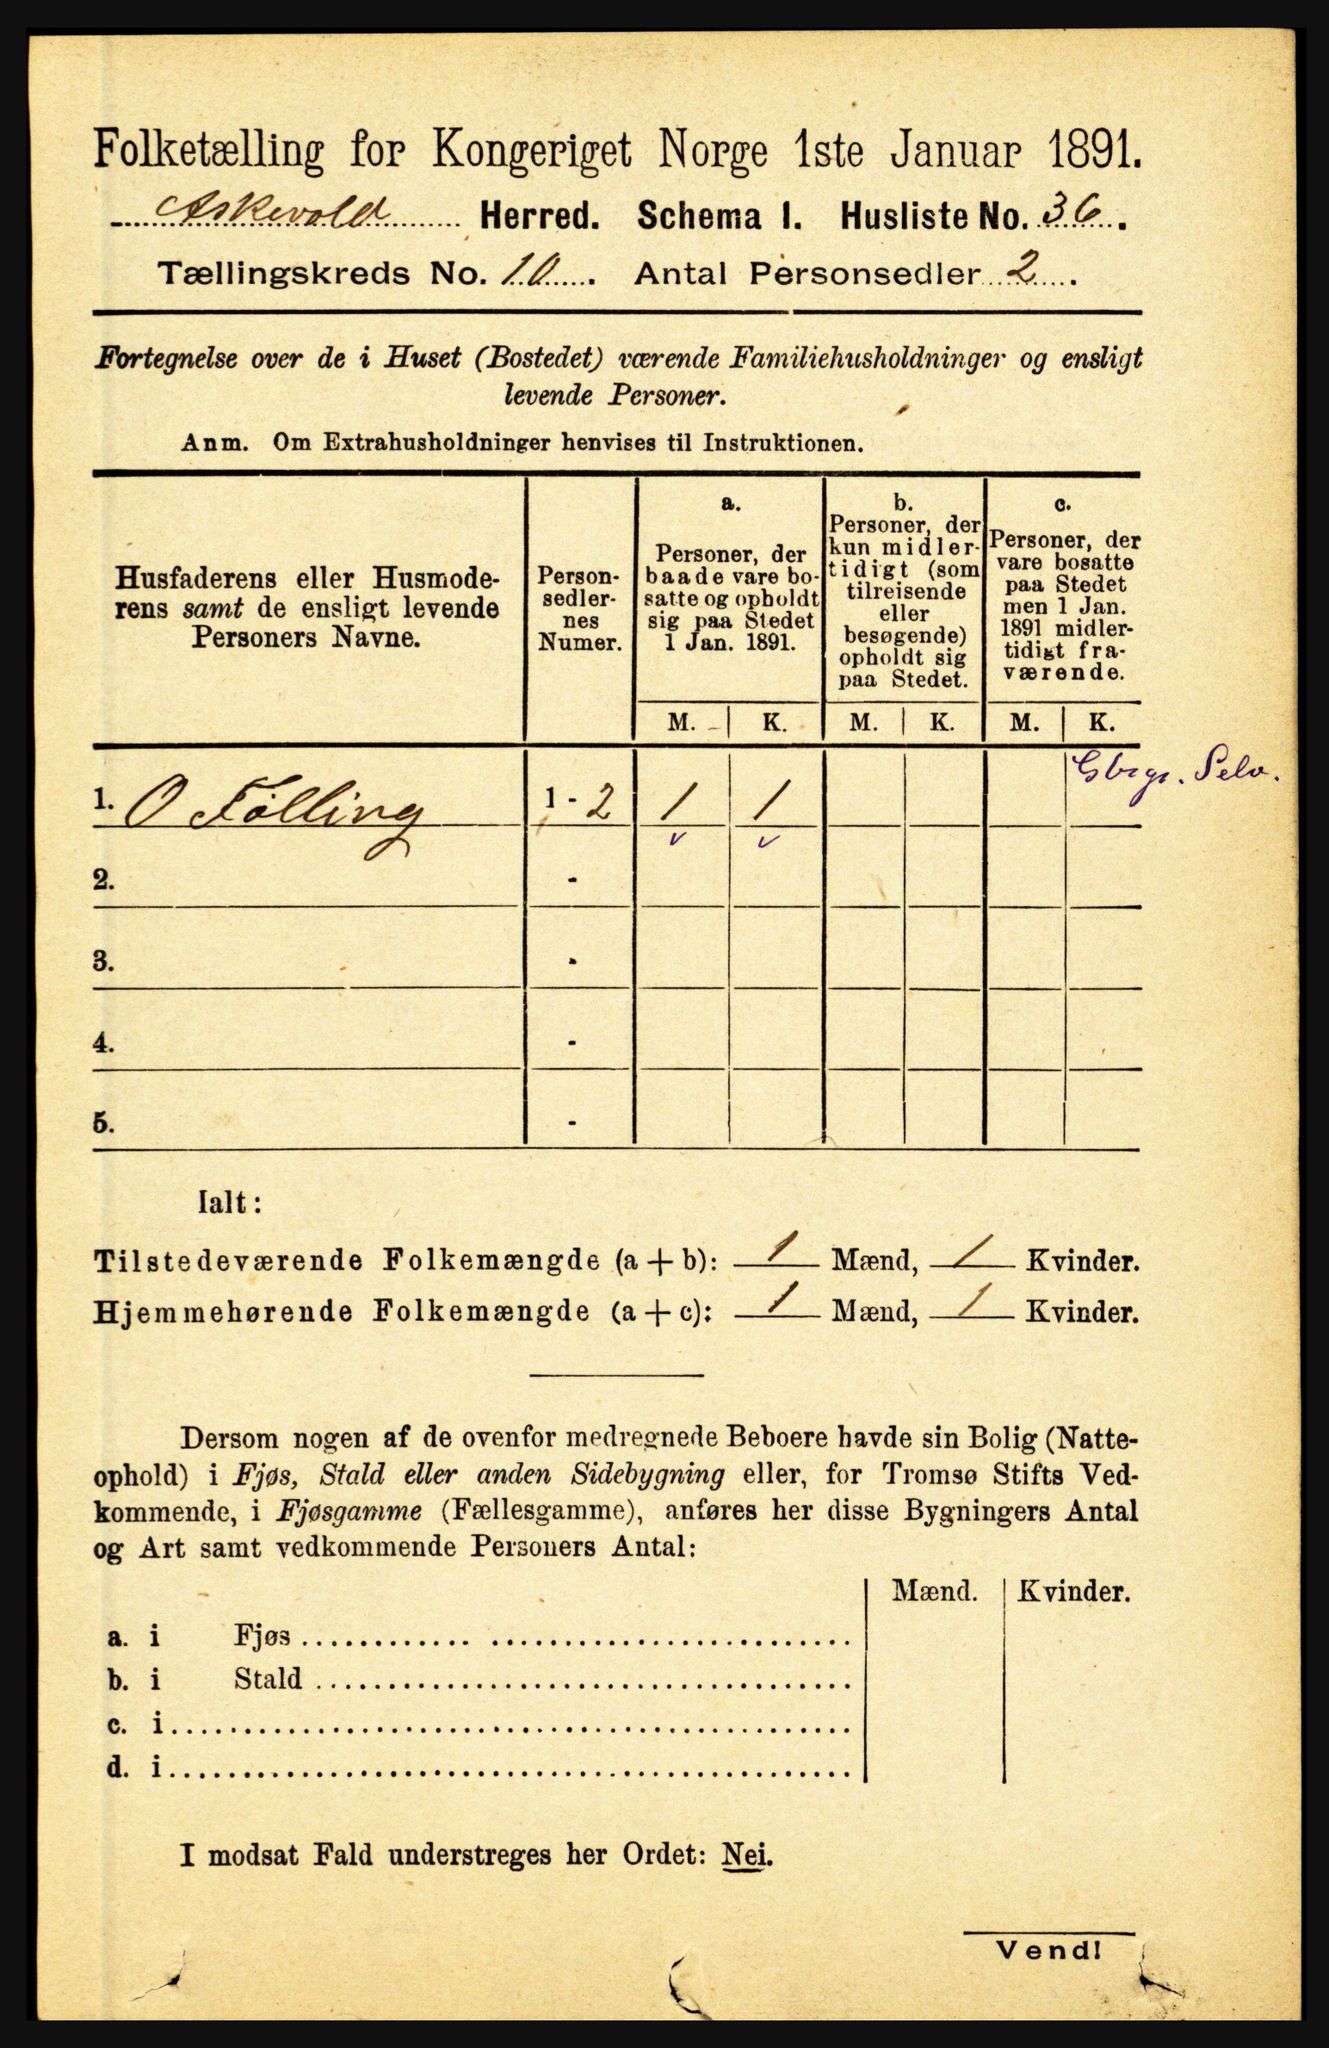 Folketælling for Kongeriget Norge 1ste Januar 1891.
Askevold Herred. Schema I. Husliste No. 36.
Tællingskreds No. 10. Antal Personsedler 2.
Fortegnelse over de i Huset (Bostedet) værende Familiehusholdninger og ensligt
levende Personer.
Anm. Om Extrahusholdninger henvises til Instruktionen.
Husfaderens eller Husmode-
rens samt de ensligt levende
Personers Navne.
Person-
sedler-
nes
Numer.
a.
Personer, der
baade vare bo-
satte og opholdt
sig paa Stedet
1 Jan. 1891.
b.
Personer, der
kun midler-
tidigt (som
tilreisende
eller
besøgende)
opholdt sig
paa Stedet.
c.
Personer, der
vare bosatte
paa Stedet
men 1 Jan.
1891 midler-
tidigt fra-
værende.
M. K. M. K. M. K.
Gbrgr. Selv.
1. O Følling 1 - 2 1 1
2. -
3. -
4. -
5. -
Ialt:
Tilstedeværende Folkemængde (a + b): 1 Mænd, 1 Kvinder.
Hjemmehørende Folkemængde (a + c): 1 Mænd, 1 Kvinder.
Dersom nogen af de ovenfor medregnede Beboere havde sin Bolig (Natte-
ophold) i Fjøs, Stald eller anden Sidebygning eller, for Tromsø Stifts Ved-
kommende, i Fjøsgamme (Fællesgamme), anføres her disse Bygningers Antal
og Art samt vedkommende Personers Antal:
Mænd. Kvinder.
a. i Fjøs
b. i Stald
c. i
d. i
I modsat Fald understreges her Ordet: Nei.
Vend!